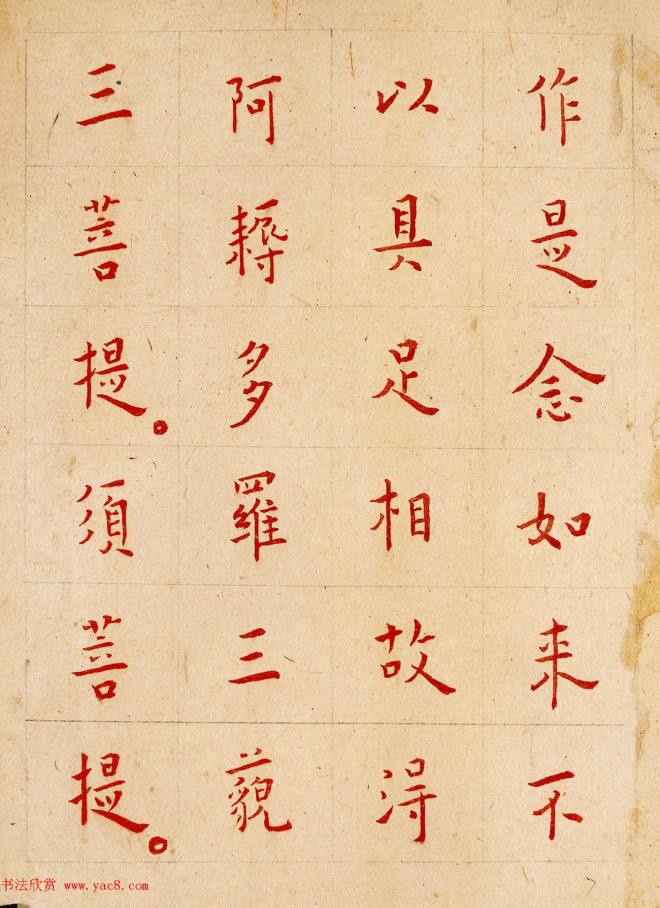 作是念如来不
以具足相故得
阿耨多羅三藐
三菩提。須菩提。
书法欣赏 www.yac8.com